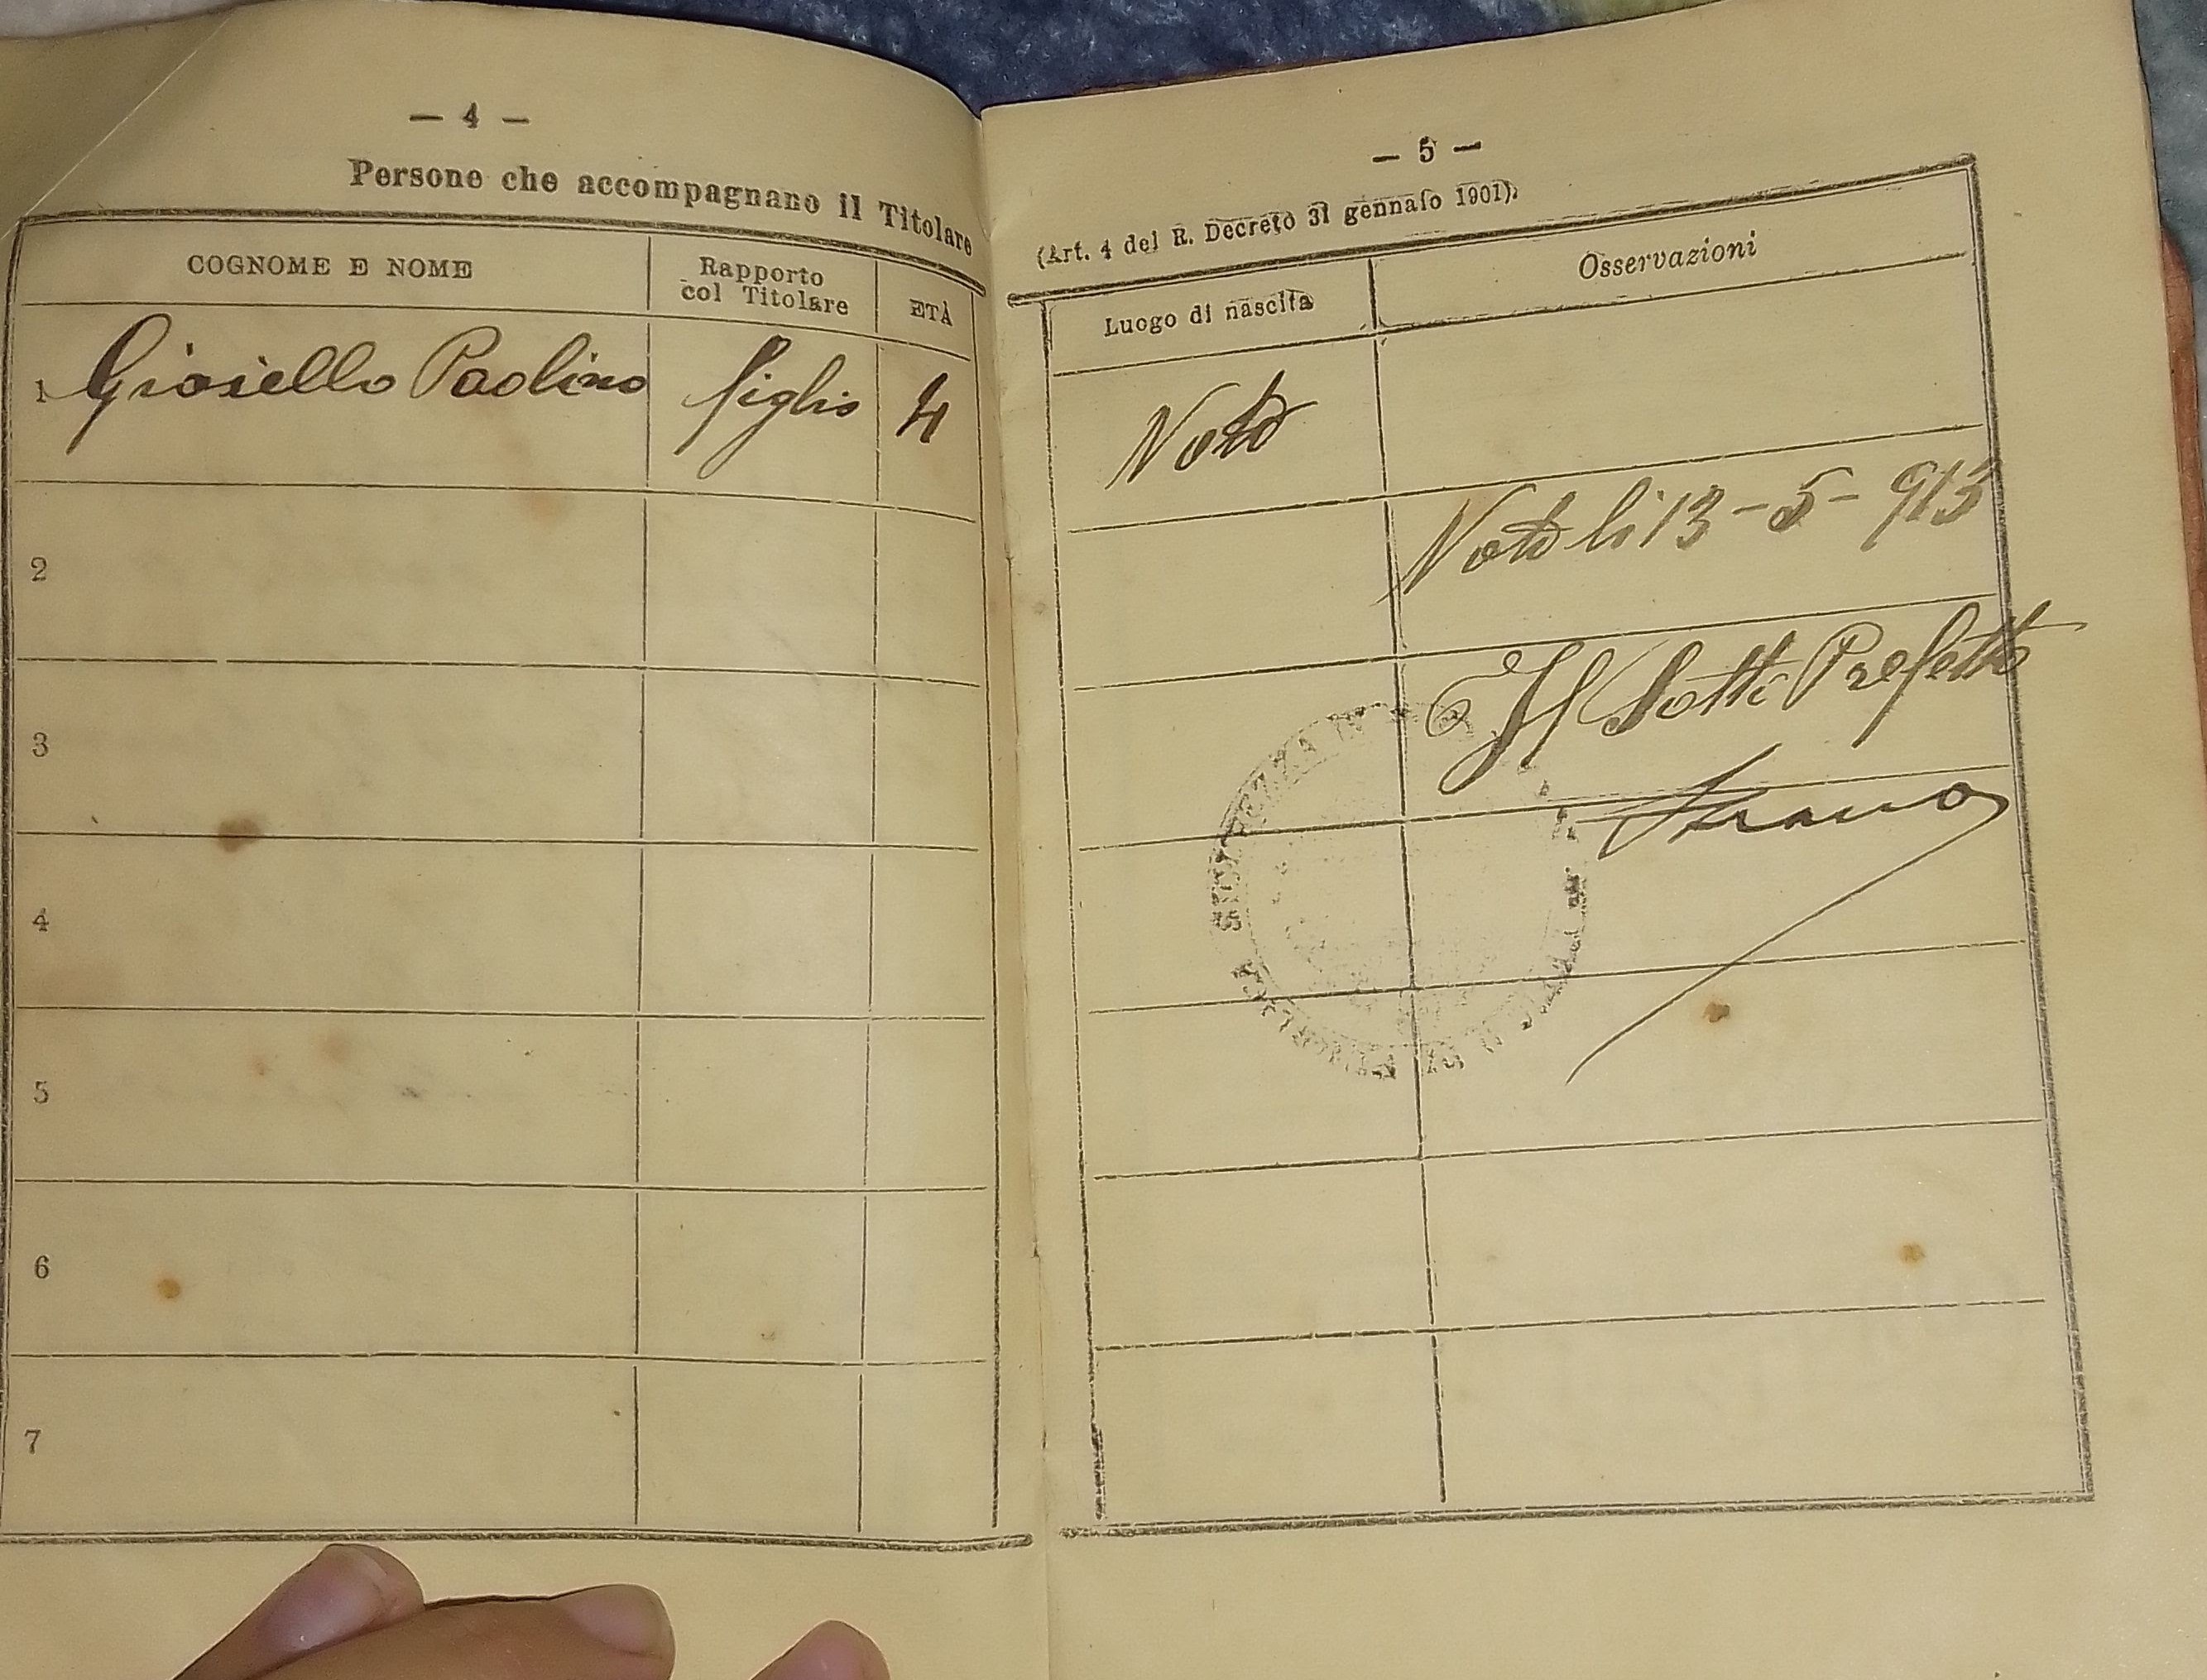 — 4 —
Persone che accompagnano il Titolare
COGNOME E NOME
Rapporto
col Titolare
ETÀ
1 Gioiello Paolino figlio 4
2
3
4
5
6
7
— 5 —
(Art. 4 del R. Decreto 31 gennaio 1901).
Luogo di nascita
Osservazioni
Noto
Noto li 13-5-913
Il Sotto Prefetto